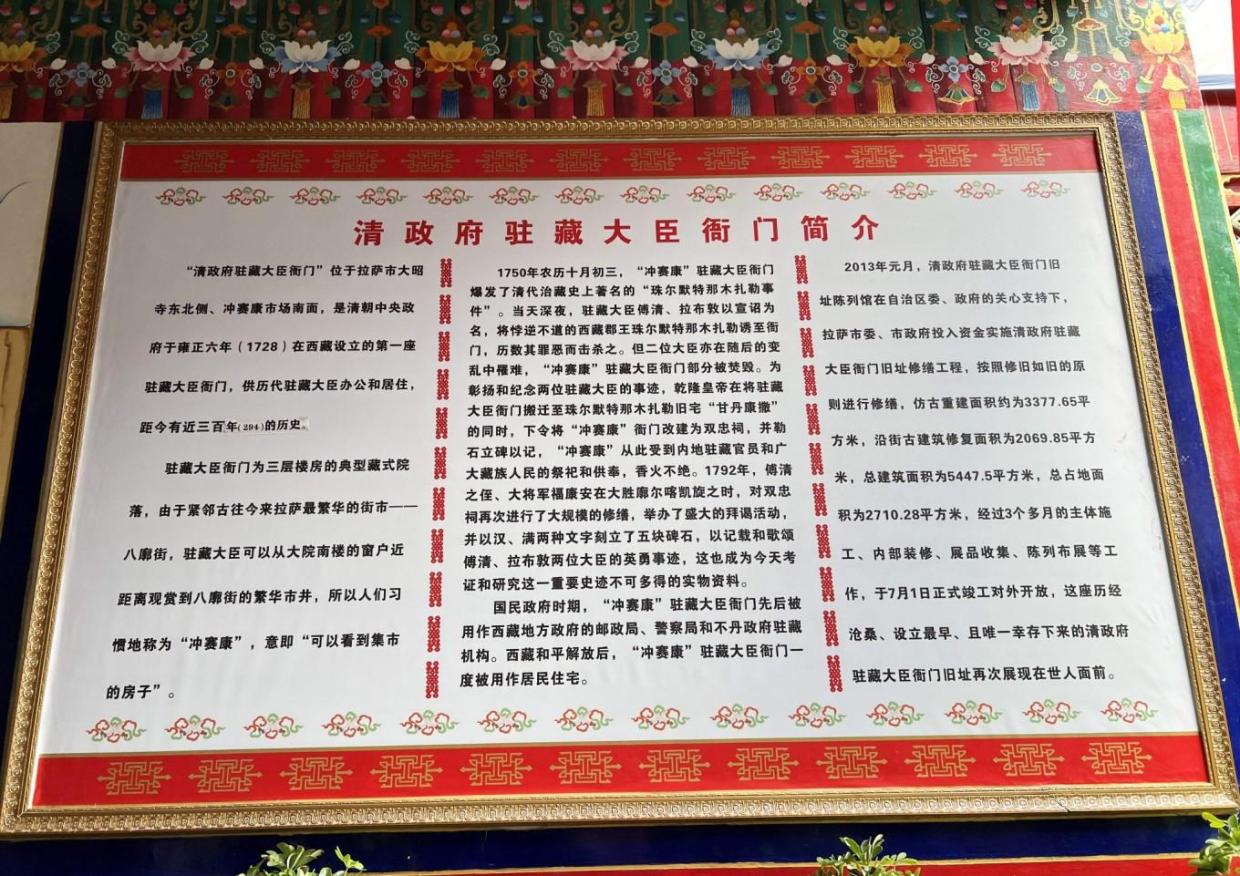 清政府驻藏大臣衙门简介
“清政府驻藏大臣衙门”位于拉萨市大昭
寺东北侧、冲赛康市场南面，是清朝中央政
府于雍正六年（1728）在西藏设立的第一座
驻藏大臣衙门，供历代驻藏大臣办公和居住，
距今有近三百年(294)的历史。
驻藏大臣衙门为三层楼房的典型藏式院
落，由于紧邻古往今来拉萨最繁华的街市——
八廓街，驻藏大臣可以从大院南楼的窗户近
距离观赏到八廓街的繁华市井，所以人们习
惯地称为“冲赛康”，意即“可以看到集市
的房子”。
1750年农历十月初三，“冲赛康”驻藏大臣衙门
爆发了清代治藏史上著名的“珠尔默特那木扎勒事
件”。当天深夜，驻藏大臣傅清、拉布敦以宣诏为
名，将悖逆不道的西藏郡王珠尔默特那木扎勒诱至衙
门，历数其罪恶而击杀之。但二位大臣亦在随后的变
乱中罹难，“冲赛康”驻藏大臣衙门部分被焚毁。为
彰扬和纪念两位驻藏大臣的事迹，乾隆皇帝在将驻藏
大臣衙门搬迁至珠尔默特那木扎勒旧宅“甘丹康撒”
的同时，下令将“冲赛康”衙门改建为双忠祠，并勒
石立碑以记，“冲赛康”从此受到内地驻藏官员和广
大藏族人民的祭祀和供奉，香火不绝。1792年，傅清
之侄、大将军福康安在大胜廓尔喀凯旋之时，对双忠
祠再次进行了大规模的修缮，举办了盛大的拜谒活动，
并以汉、满两种文字刻立了五块碑石，以记载和歌颂
傅清、拉布敦两位大臣的英勇事迹，这也成为今天考
证和研究这一重要史迹不可多得的实物资料。
国民政府时期，“冲赛康”驻藏大臣衙门先后被
用作西藏地方政府的邮政局、警察局和不丹政府驻藏
机构。西藏和平解放后，“冲赛康”驻藏大臣衙门一
度被用作居民住宅。
2013年元月，清政府驻藏大臣衙门旧
址陈列馆在自治区委、政府的关心支持下，
拉萨市委、市政府投入资金实施清政府驻藏
大臣衙门旧址修缮工程，按照修旧如旧的原
则进行修缮，仿古重建面积约为3377.65平
方米，沿街古建筑修复面积为2069.85平方
米，总建筑面积为5447.5平方米，总占地面
积为2710.28平方米，经过3个多月的主体施
工、内部装修、展品收集、陈列布展等工
作，于7月1日正式竣工对外开放，这座历经
沧桑、设立最早、且唯一幸存下来的清政府
驻藏大臣衙门旧址再次展现在世人面前。